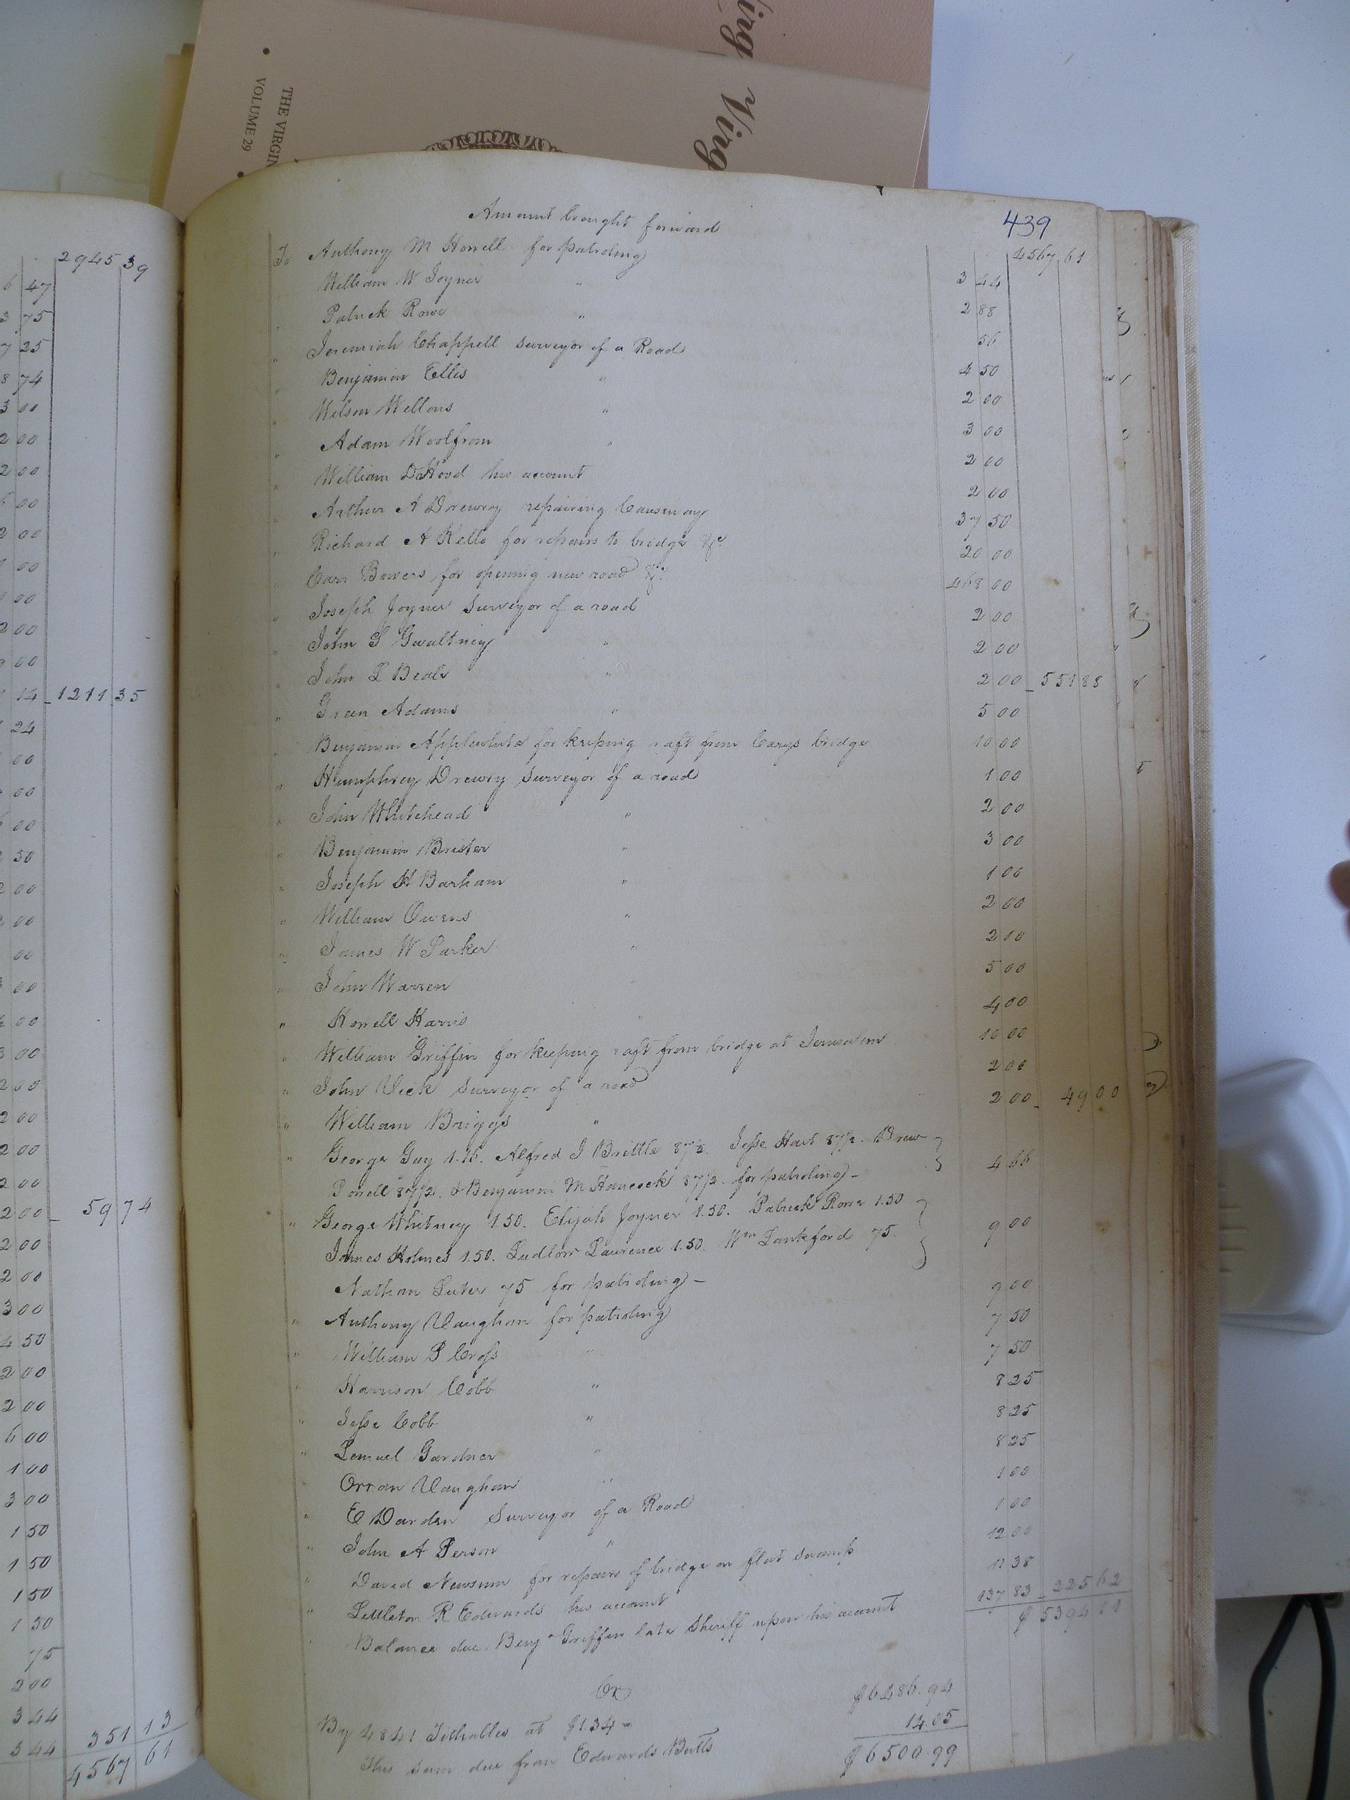 Virg Virg
THE VIRGIN
VOLUME 29
2945 39
6 47
3 75
7 25
8 74
3 00
2 00
2 00
00
2 00
00
00
2 00
00
14 - 1211 35
24
00
00
00
50
00
00
00
00
00
3 00
2 00
2 00
2 00
2 00
2 00 - 59 74
2 00
2 00
3 00
4 50
2 00
2 00
6 00
1 00
3 00
1 50
1 50
1 50
1 30
75
2 00
3 44
3 44 351 13
4567 61
439
Amount brought forward 4567 61
To Anthony M Howell for patroling 3 44
" William W Joyner " 2 88
" Patrick Rowe " 56
" Jeremiah Chappell Surveyor of a Road 4 50
" Benjamin Ellis " 2 00
" Wilson Wellons " 3 00
" Adam Woolfrom " 2 00
" William D Hood his account 2 00
" Arthur A Drewry repairing Causeway 37 50
" Richard A Kello for repairs to bridge &c 20 00
" Carr Bowers for opening new road &c 468 00
" Joseph Joyner Surveyor of a road 2 00
" John S Gwaltney " 2 00
" John L Beale " 2 00 - 551 88
" Green Adams " 5 00
" Benjamin Applewhite for keeping raft from Carys bridge 10 00
" Humphrey Drewry Surveyor of a road 1 00
" John Whitehead " 2 00
" Benjamin Brister " 3 00
" Joseph H Barham " 1 00
" William Owens " 2 00
" James W Parker " 2 10
" John Warren " 5 00
" Howell Harris " 4 00
" William Griffin for keeping raft from bridge at Jerusalem 10 00
" John Vick Surveyor of a road 2 00
" William Briggs " 2 00 - 49 00
" George Guy 1.16. Alfred J Brittle 87½ Jesse Hart 87½ Drew
Powell 87½ & Benjamin M Hancock 87½ for patroling - 4 66
" George Whitney 1.50. Elijah Joyner 1.50. Patrick Rowe 1.50
James Holmes 1.50. Ludlow Laurence 1.50. Wm Lankford 75. 9 00
Nathan Luter 75 for patroling - 9 00
" Anthony Vaughan for patroling 7 50
" William P Cross " 7 50
" Harrison Cobb " 8 25
" Jesse Cobb " 8 25
" Lemuel Gardner " 8 25
" Orran Vaughan " 1 00
" E Darden Surveyor of a Road 1 00
" John A Person " 12 00
" David Newsum for repairs of bridge on flat Swamp 11 38
" Littleton R Edwards his account 137 83 - 225 62
Balance due Benjn Griffin late Sheriff upon his account $5394 11
Cr
By 4841 Tithables at $1.34 - $6486.94
This sum due from Edwards Butts 14.05
$6500.99